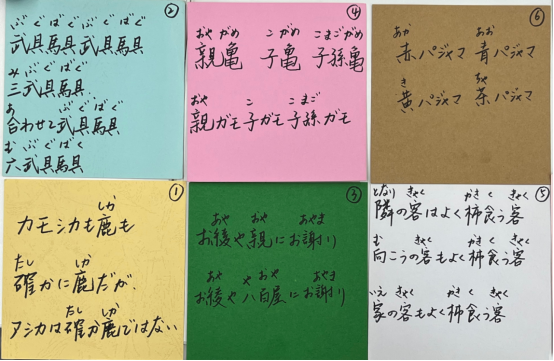 ②
ぶぐばぐぶぐばぐ
武具馬具武具馬具
みぶぐばぐ
三武具馬具
あ ぶぐばぐ
合わせて武具馬具
む ぶぐばぐ
六武具馬具
④
おやがめ こがめ こまごがめ
親亀 子亀 子孫亀
おや こ こまご
親ガモ子ガモ子孫ガモ
⑥
あか あお
赤パジャマ 青パジャマ
き ちゃ
黄パジャマ 茶パジャマ
①
しか
カモシカも鹿も
たし しか
確かに鹿だが、
たし しか
アシカは確か鹿ではない
③
あや おや あやま
お綾や親にお謝り
あや や おや あやま
お綾や八百屋にお謝り
⑤
となり きゃく かきく きゃく
隣の客はよく柿食う客
む きゃく かきく きゃく
向こうの客もよく柿食う客
いえ きゃく かきく きゃく
家の客もよく柿食う客